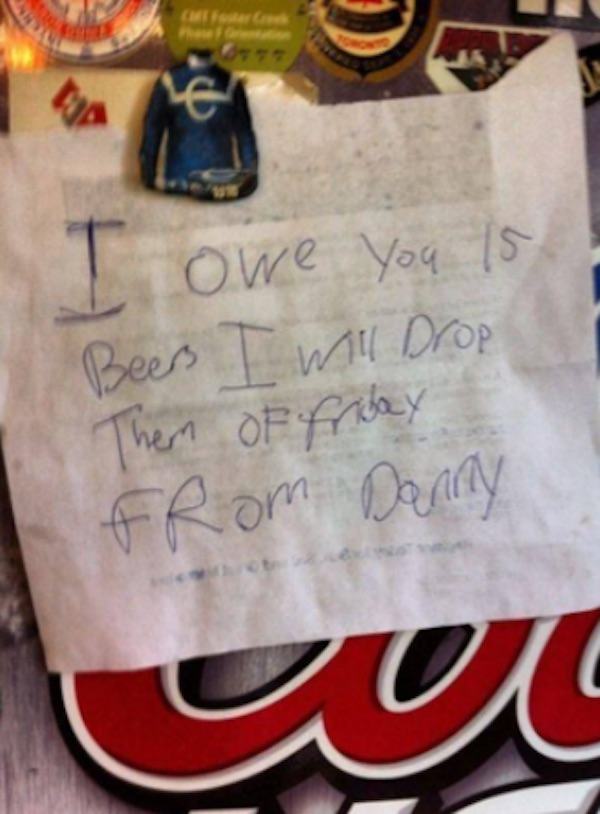 CMT Foster Creek
Phase F Orientation
TORONTO
I owe You 15
Beers I will Drop
Them OF friday
FROM Danny